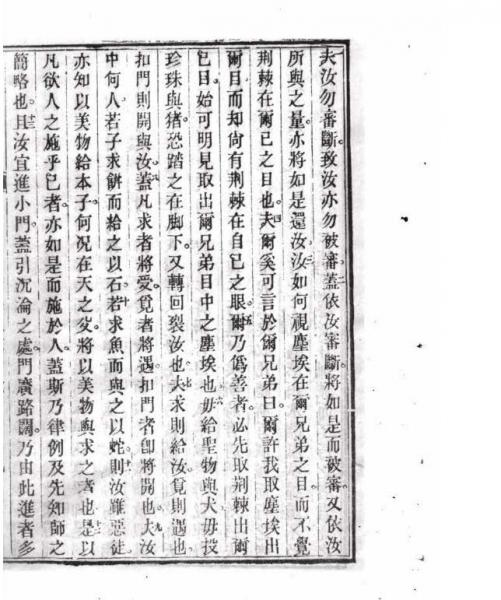 夫汝勿審斷致汝亦勿被審蓋依汝審斷將如是而被審又依汝
所與之量亦將如是還汝汝如何視塵埃在爾兄弟之目而不覺
荆棘在爾己之目也夫爾奚可言於爾兄弟曰爾許我取塵埃出
爾目而却尙有荆棘在自己之眼爾乃僞善者必先取荆棘出爾
己目始可明見取出爾兄弟目中之塵埃也毋給聖物與犬毋投
珍珠與猪恐踏之在脚下又轉回裂汝也夫求則給汝覓則遇也
扣門則開與汝蓋凡求者將受覓者將遇扣門者卽將開也夫汝
中何人若子求餅而給之以石若求魚而與之以蛇則汝雖惡徒
亦知以美物給本子何況在天之父將以美物與求之者也是以
凡欲人之施乎己者亦如是而施於人蓋斯乃律例及先知師之
簡略也且汝宜進小門蓋引沉淪之處門廣路闊乃由此進者多